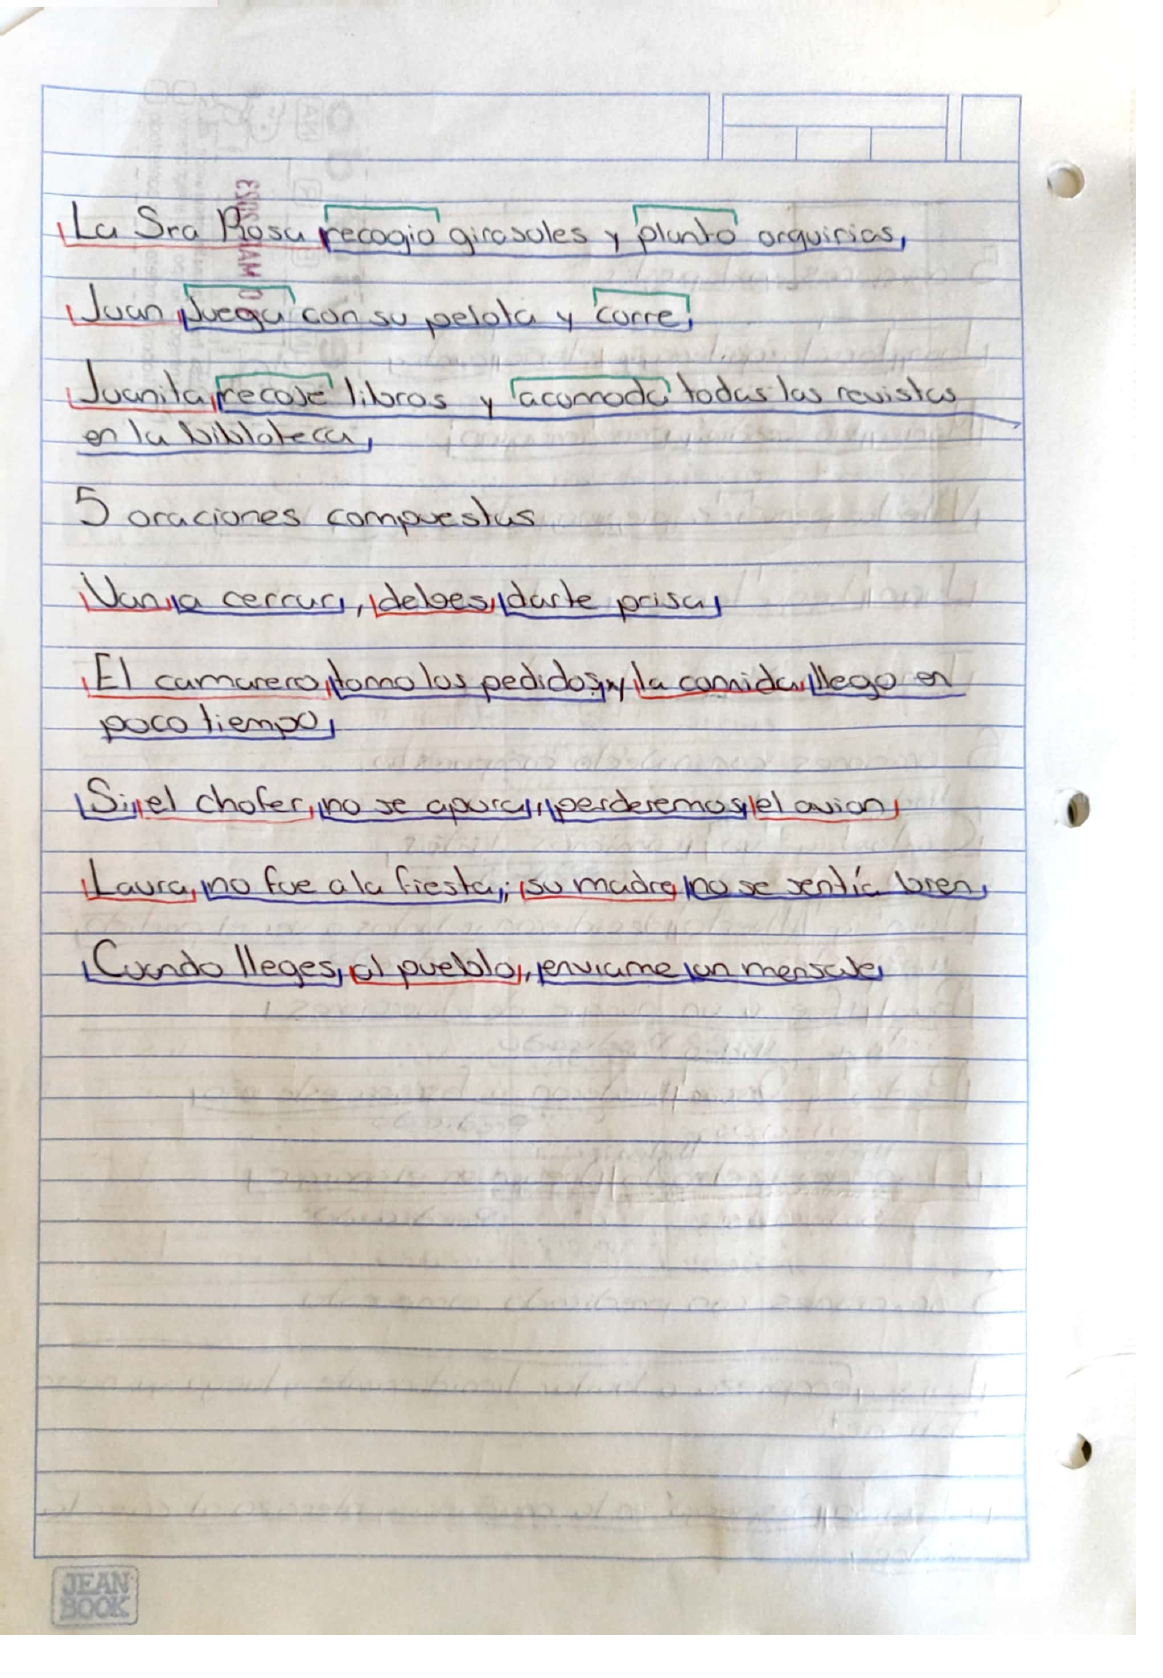 La Sra Rosa recogio girasoles y planto orquirias,
Juan Juega con su pelota y corre
Juanita recoje libros y acomoda todas las revistas
en la bibloteca
5 oraciones compuestas
Van a cerrar, debes darte prisa
El camarero tomo los pedidos y la comida llego en
poco tiempo
Si el chofer no se apura, perderemos el avion
Laura no fue a la fiesta; su madre no se sentía bien
Cuando lleges al pueblo, enviame un mensaje
JEAN
BOOK